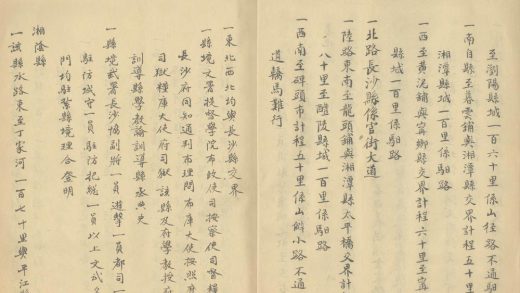 至瀏陽縣城一百六十里係山徑路不通馹
一南自縣至暮雲舖與湘潭縣交界計程五十里
湘潭縣城一百里係馹路
一西至黃泥舖與寧鄉縣交界計程六十里至寧
縣城一百里係馹路
一北路長沙縣係官街大道
一陸路東南至龍頭舖與湘潭縣太平橋交界計
八十里至醴陵縣城一百里係馹路
一西南至碑頭市計程五十里係山僻小路不通
道轎馬難行
一東北西北均與長沙縣交界
一縣境文署提督學院布政使司按察使司督糧
長沙府同知通判布理問布庫大使按照磨
司獄糧庫大使府司獄該縣及府學教授府
訓導縣學教諭訓導縣丞典史
一縣境武署長沙協副將一員遊擊一員都司一
駐防城守一員駐防把總一員以上文武
門均駐紮縣境理合登明
湘陰縣
一該縣水路東至丁家河一百七十里與平江縣